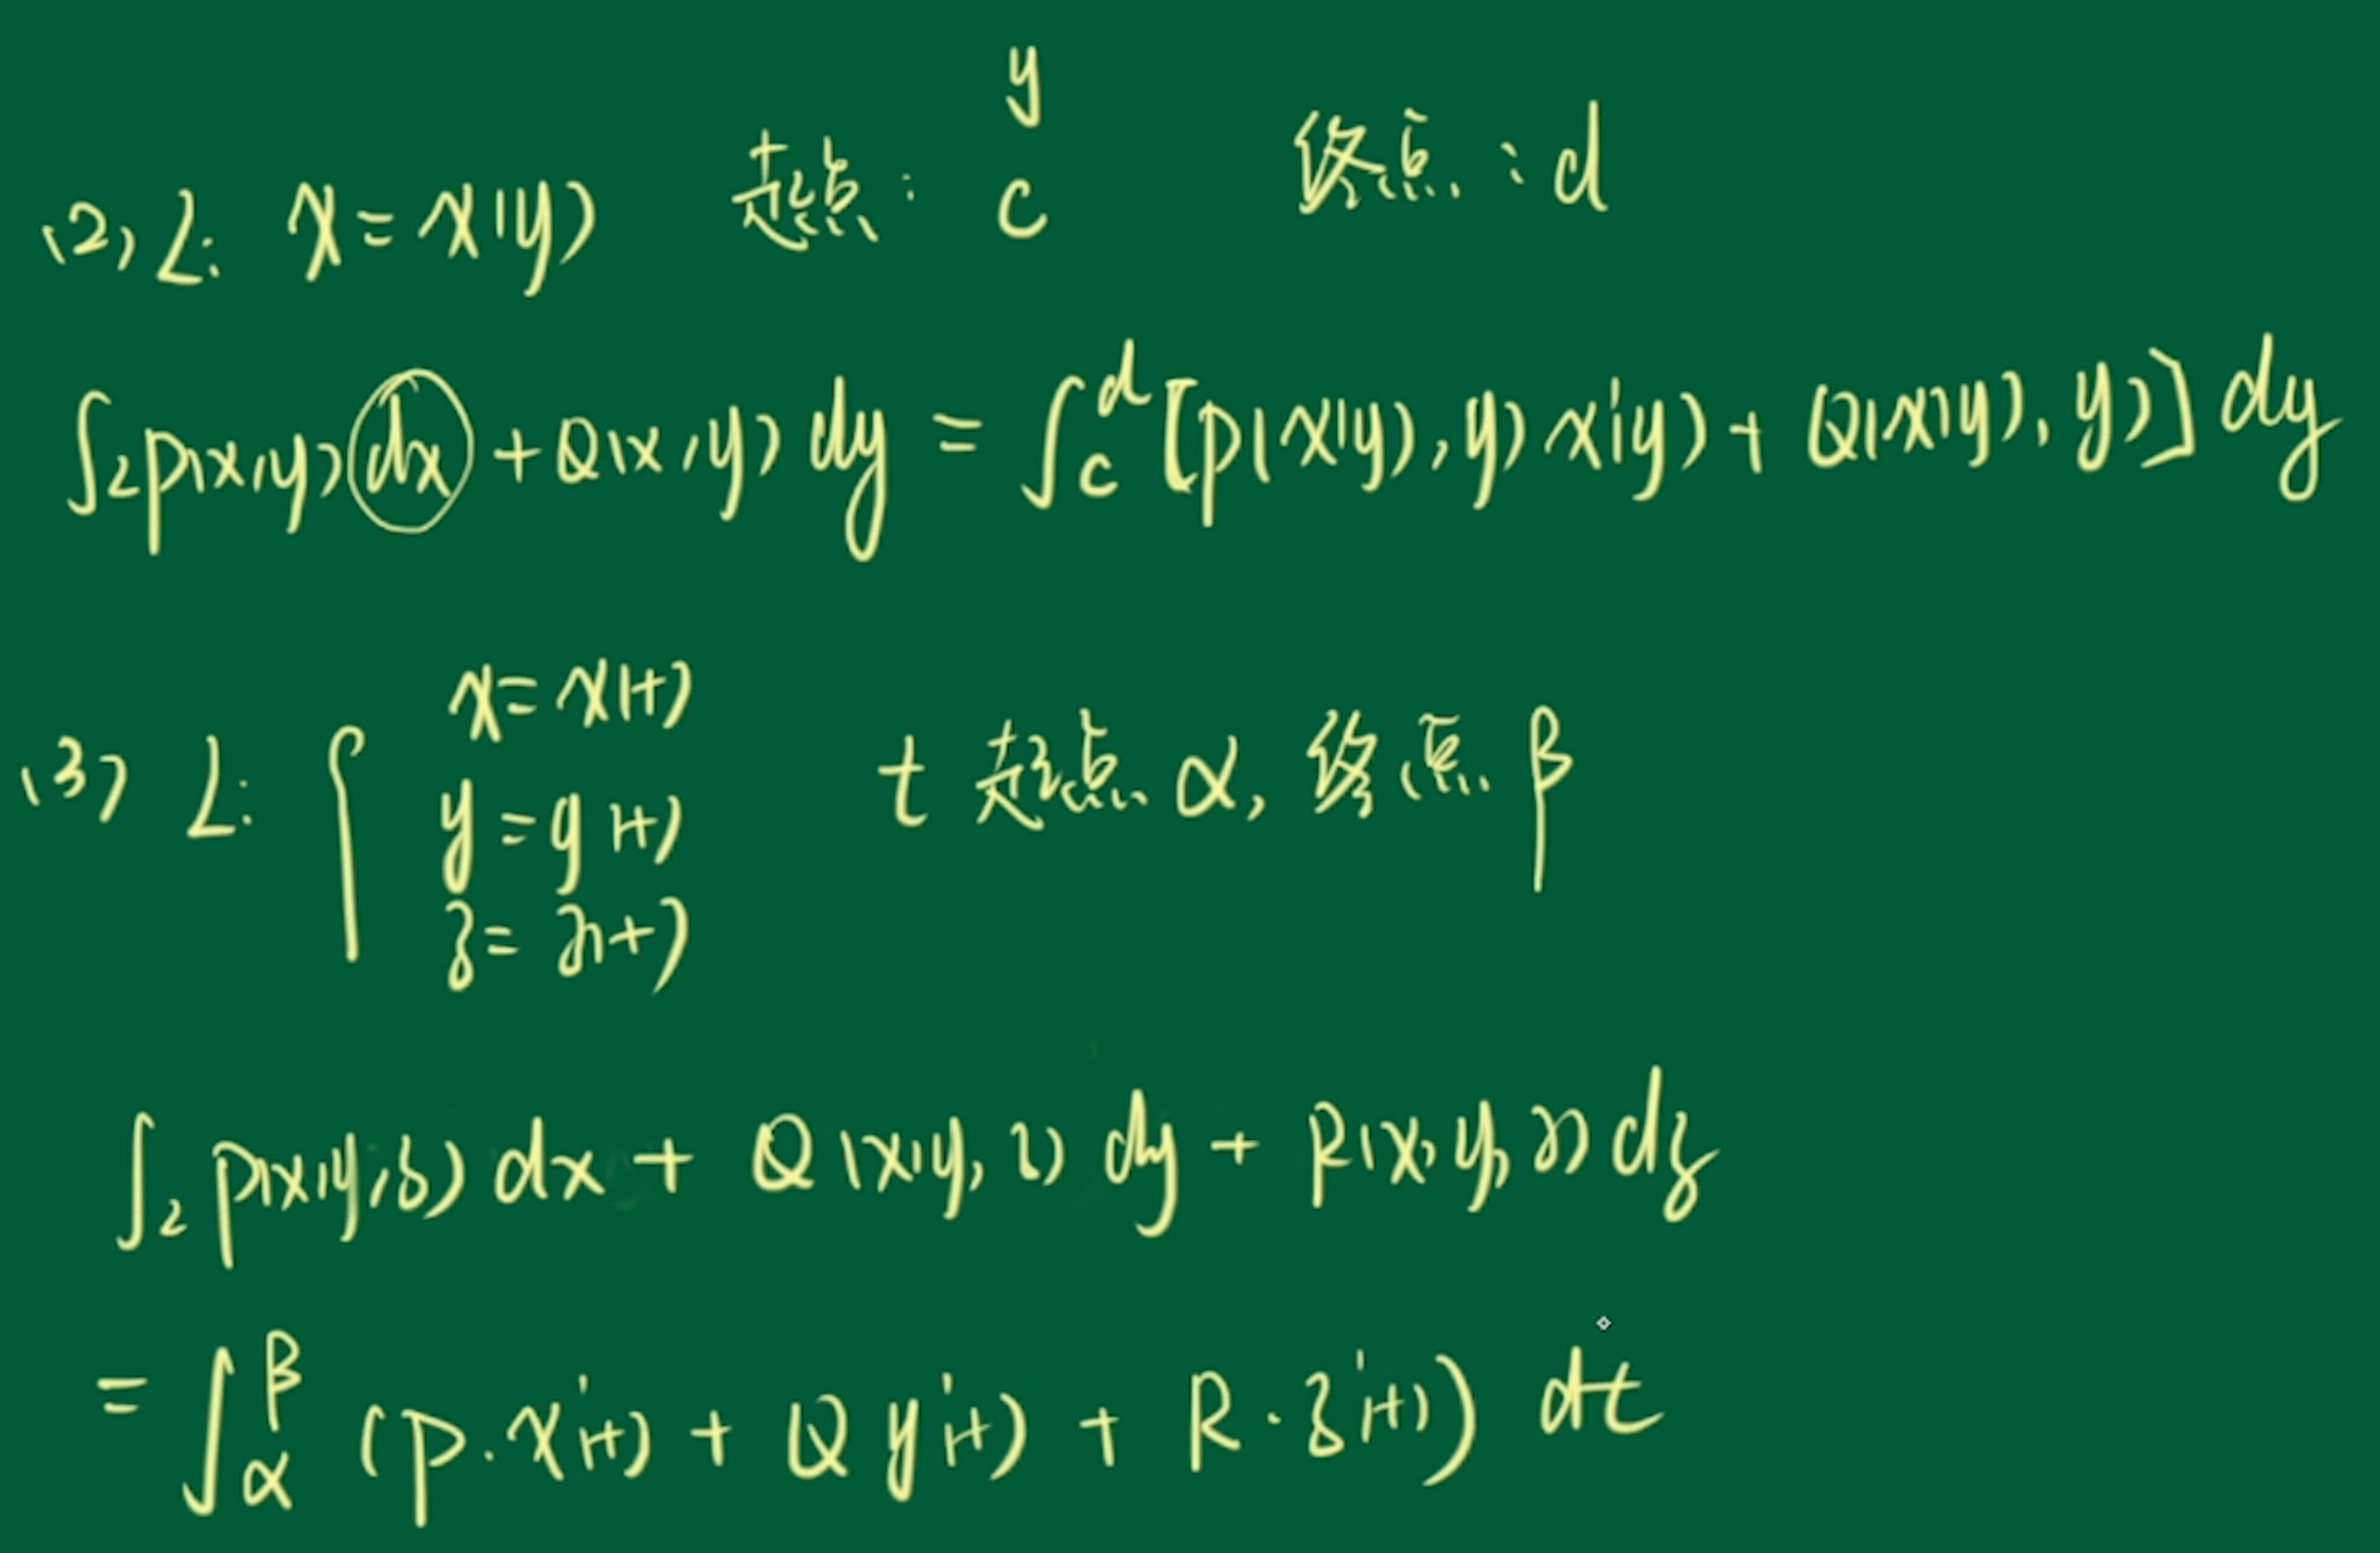 (2) L: x = x(y) 起点: y c 终点: d
∫_L P(x,y) dx + Q(x,y) dy = ∫_c^d [P(x(y), y) x'(y) + Q(x(y), y)] dy
(3) L: { x = x(t)
y = y(t) t 起点 α, 终点 β
z = z(t)
∫_L P(x,y,z) dx + Q(x,y,z) dy + R(x,y,z) dz
= ∫_α^β (P · x'(t) + Q y'(t) + R · z'(t)) dt